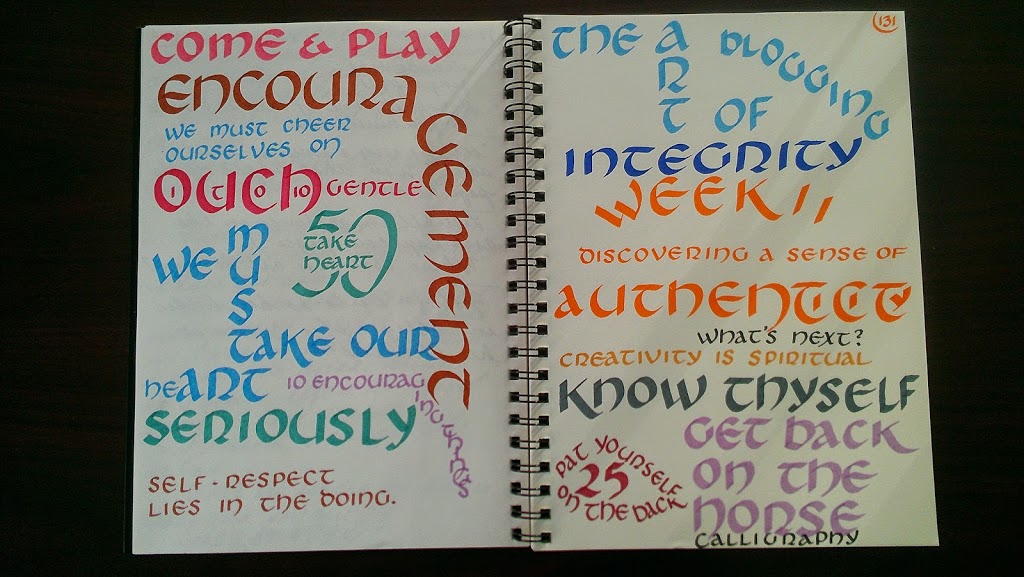 COME & PLAY
ENCOURAGEMENT
WE MUST CHEER
OURSELVES ON
OUCH
1 TO 10 GENTLE
WE MUST
50
TAKE
HEART
TAKE OUR
HEART
10 ENCOURAGING
SERIOUSLY
SELF-RESPECT
LIES IN THE DOING.
131
THE ART OF BLOGGING
INTEGRITY
WEEK 11
DISCOVERING A SENSE OF
AUTHENTICITY
WHAT'S NEXT?
CREATIVITY IS SPIRITUAL
KNOW THYSELF
GET BACK
ON THE
HORSE
PAT YOURSELF
25
ON THE BACK
CALLIGRAPHY